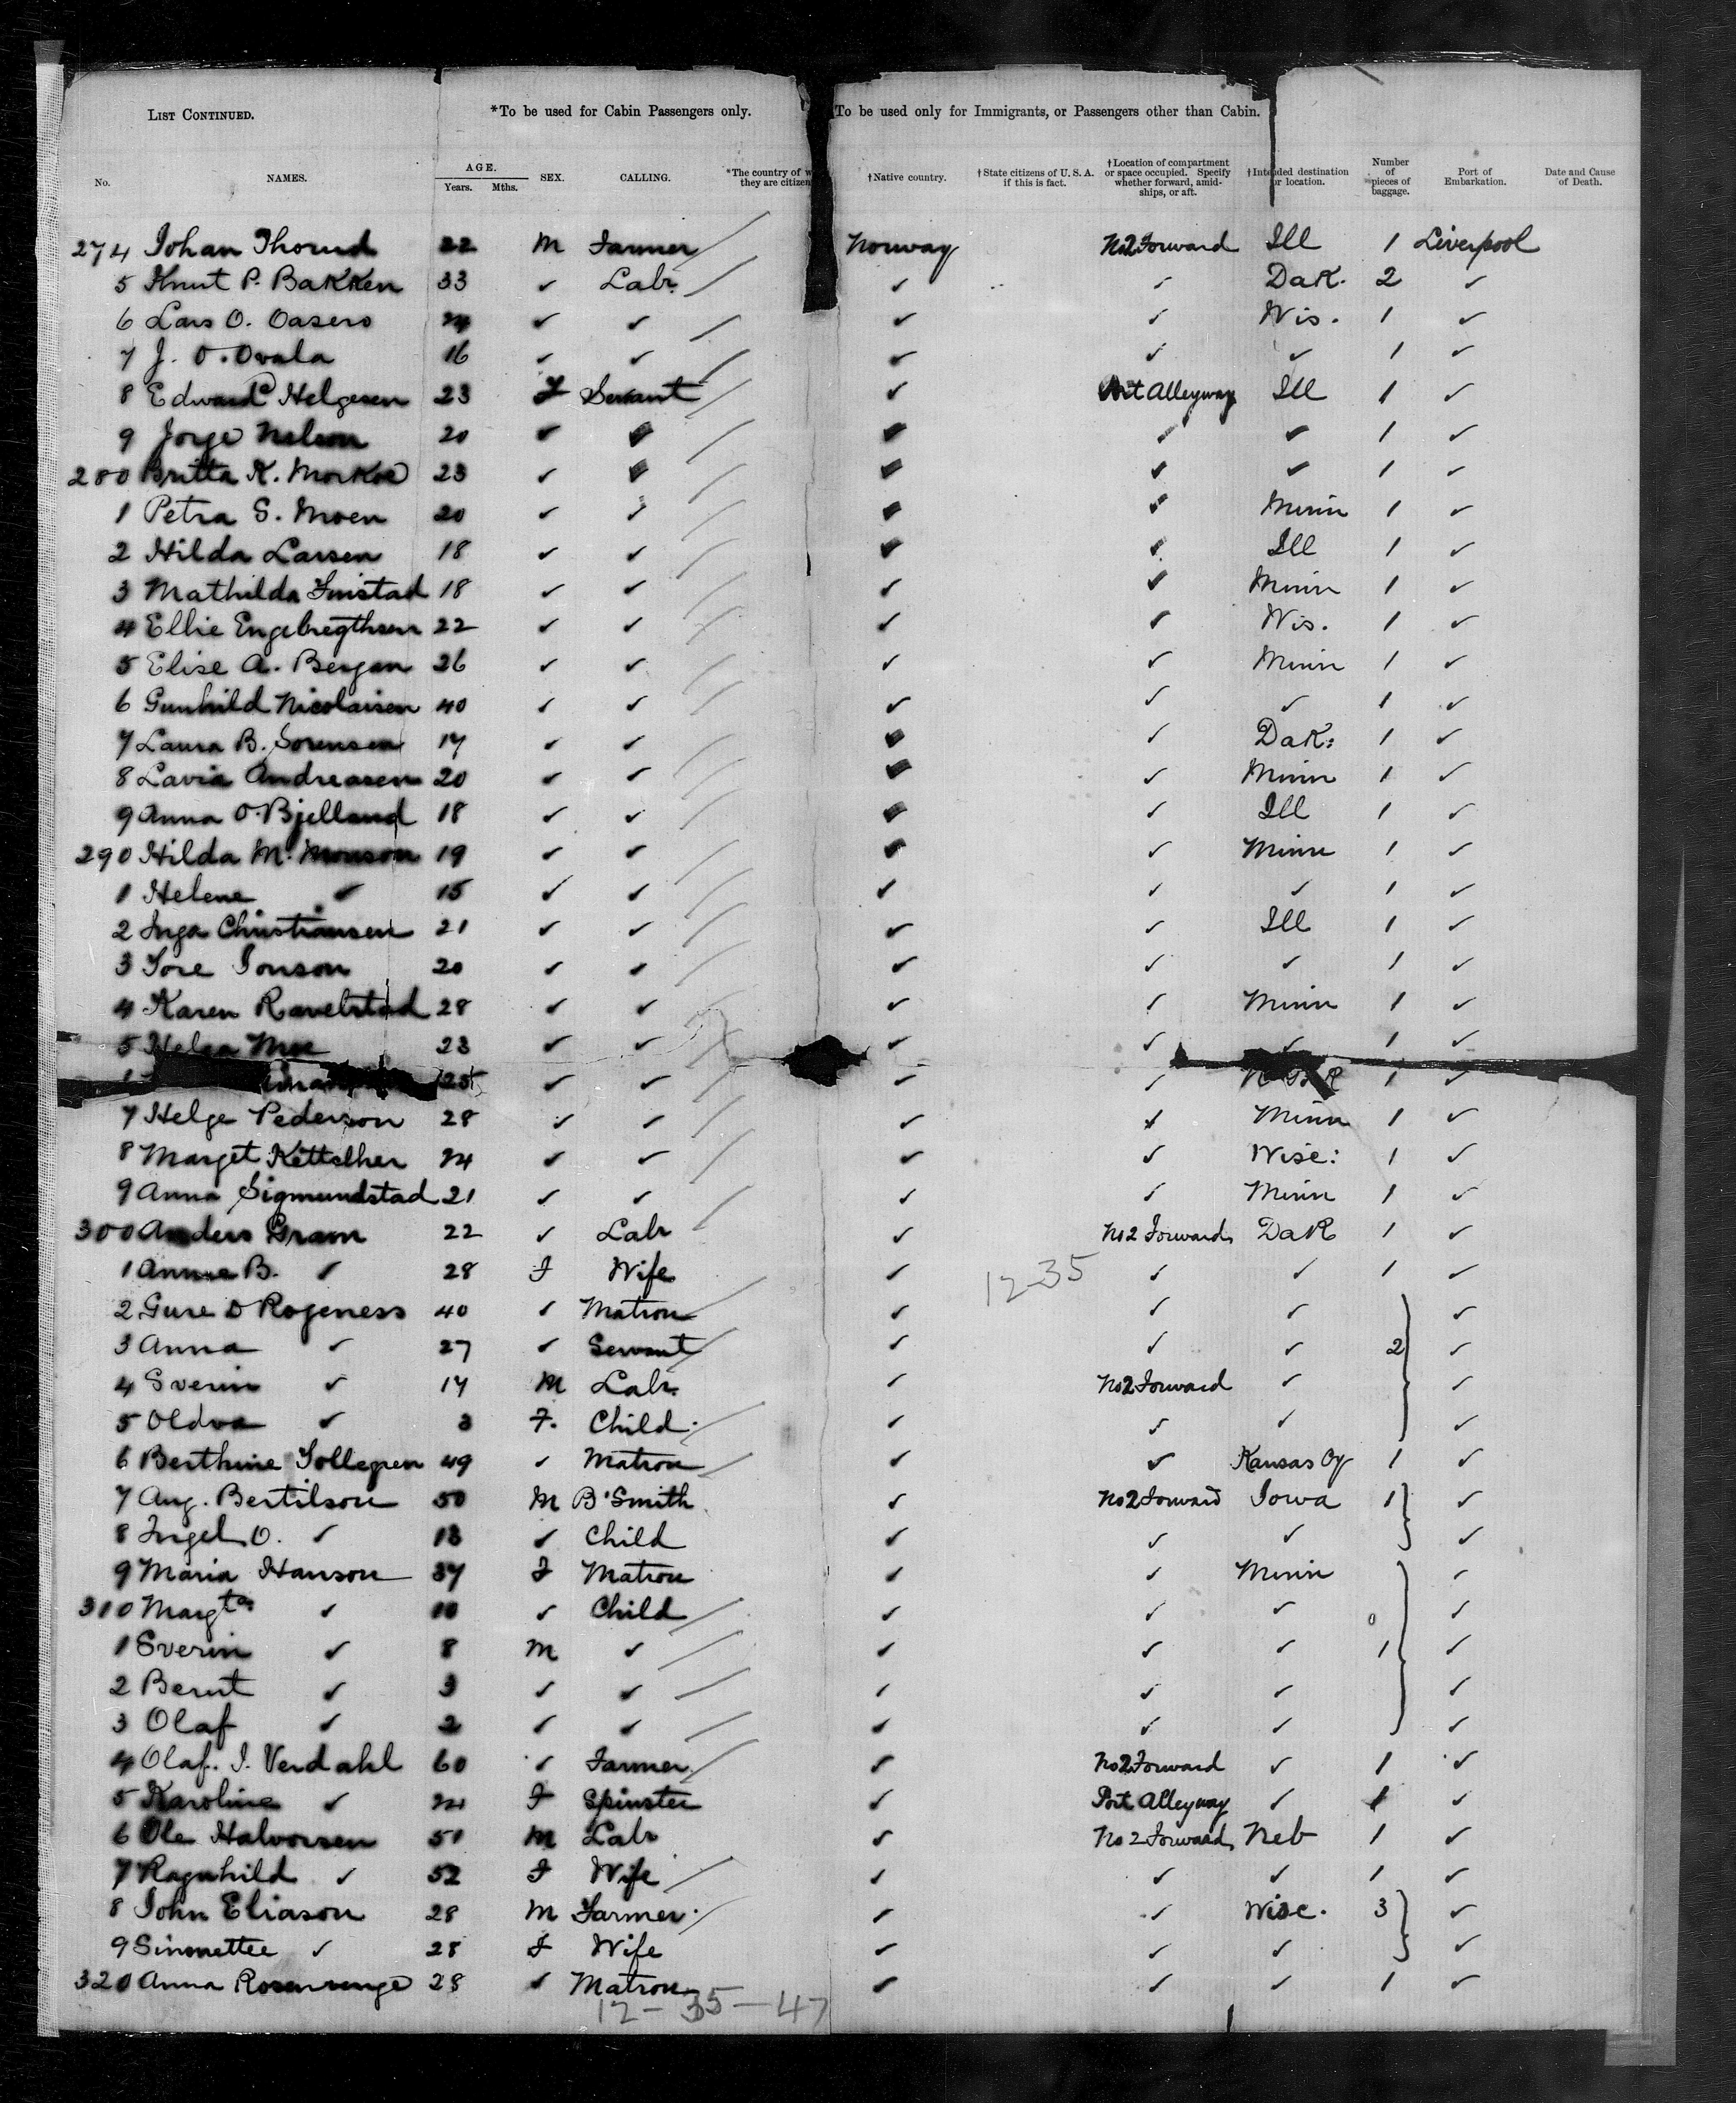 LIST CONTINUED. *To be used for Cabin Passengers only. To be used only for Immigrants, or Passengers other than Cabin.
No. NAMES. AGE. Years. Mths. SEX. CALLING. *The country of w they are citizen †Native country. †State citizens of U.S.A. if this is fact. †Location of compartment or space occupied. Specify whether forward, amidships, or aft. †Intended destination or location. Number of pieces of baggage. Port of Embarkation. Date and Cause of Death.
274 Johan Thorud 22 M Farmer Norway No2 Forward Ill 1 Liverpool
5 Knut P. Bakken 33 ✓ Labr. ✓ ✓ Dak. 2 ✓
6 Lars O. Oasero 24 ✓ ✓ ✓ ✓ Wis. 1 ✓
7 J. O. Ovala 16 ✓ ✓ ✓ ✓ ✓ 1 ✓
8 Edward Helgesen 23 F Servant ✓ Port Alleyway Ill 1 ✓
9 Jorge Nelson 20 ✓ ✓ ✓ ✓ ✓ 1 ✓
280 Britta K. 23 ✓ ✓ ✓ ✓ ✓ 1 ✓
1 Petra S. Moen 20 ✓ ✓ ✓ ✓ Minn 1 ✓
2 Hilda Larsen 18 ✓ ✓ ✓ ✓ Ill 1 ✓
3 Mathilda 18 ✓ ✓ ✓ ✓ Minn 1 ✓
4 Ellie Engebregthsen 22 ✓ ✓ ✓ ✓ Wis. 1 ✓
5 Elise A. Bergan 26 ✓ ✓ ✓ ✓ Minn 1 ✓
6 Gunhild Nicolaisen 40 ✓ ✓ ✓ ✓ ✓ 1 ✓
7 Laura B. Sorensen 17 ✓ ✓ ✓ ✓ Dak: 1 ✓
8 Lavia Andreasen 20 ✓ ✓ ✓ ✓ Minn 1 ✓
9 Anna O. Bjelland 18 ✓ ✓ ✓ ✓ Ill 1 ✓
290 Hilda M. Monson 19 ✓ ✓ ✓ ✓ Minn 1 ✓
1 Helene ✓ 15 ✓ ✓ ✓ ✓ ✓ 1 ✓
2 Inga Christiansen 21 ✓ ✓ ✓ ✓ Ill 1 ✓
3 Tore Jonson 20 ✓ ✓ ✓ ✓ ✓ 1 ✓
4 Karen Ravelstad 28 ✓ ✓ ✓ ✓ Minn 1 ✓
5 Helga Moe 23 ✓ ✓ ✓ ✓ ✓ 1 ✓
25 ✓ ✓ ✓ ✓ 1 ✓
7 Helge Pederson 28 ✓ ✓ ✓ ✓ Minn 1 ✓
8 Marget Kettelher 24 ✓ ✓ ✓ ✓ Wisc: 1 ✓
9 Anna Sigmundstad 21 ✓ ✓ ✓ ✓ Minn 1 ✓
300 Anders Gram 22 ✓ Labr ✓ No2 Forward Dak 1 ✓
1 Annie B. ✓ 28 F Wife ✓ 12-35 ✓ ✓ 1 ✓
2 Gure D Rogeness 40 ✓ Matron ✓ ✓ ✓ ✓
3 Anna ✓ 27 ✓ Servant ✓ ✓ ✓ 2 ✓
4 Sverin ✓ 17 M Labr. ✓ No2 Forward ✓ ✓
5 Oldva ✓ 3 F. Child. ✓ ✓ ✓ ✓
6 Berthine Tollegsen 49 ✓ Matron ✓ ✓ Kansas Cy 1 ✓
7 Aug. Bertilson 50 M B'Smith ✓ No2 Forward Iowa 1 ✓
8 Ingel O. ✓ 13 ✓ Child ✓ ✓ ✓ ✓
9 Maria Hanson 37 F Matron ✓ ✓ Minn ✓
310 Margta. ✓ 10 ✓ Child ✓ ✓ ✓ 0 ✓
1 Sverin ✓ 8 M ✓ ✓ ✓ ✓ 1 ✓
2 Bernt ✓ 3 ✓ ✓ ✓ ✓ ✓ ✓
3 Olaf ✓ 2 ✓ ✓ ✓ ✓ ✓ ✓
4 Olaf. I. Verdahl 60 ✓ Farmer. ✓ No2 Forward ✓ 1 ✓
5 Karoline ✓ 24 F Spinster ✓ Port Alleyway ✓ 1 ✓
6 Ole Halvorsen 51 M Labr ✓ No 2 Forward Neb 1 ✓
7 Ragnhild ✓ 52 F Wife ✓ ✓ ✓ 1 ✓
8 John Eliason 28 M Farmer. ✓ ✓ Wisc. 3 ✓
9 Sinmettee ✓ 28 F Wife ✓ ✓ ✓ ✓
320 Anna 28 ✓ Matron ✓ ✓ ✓ 1 ✓
12-35-47